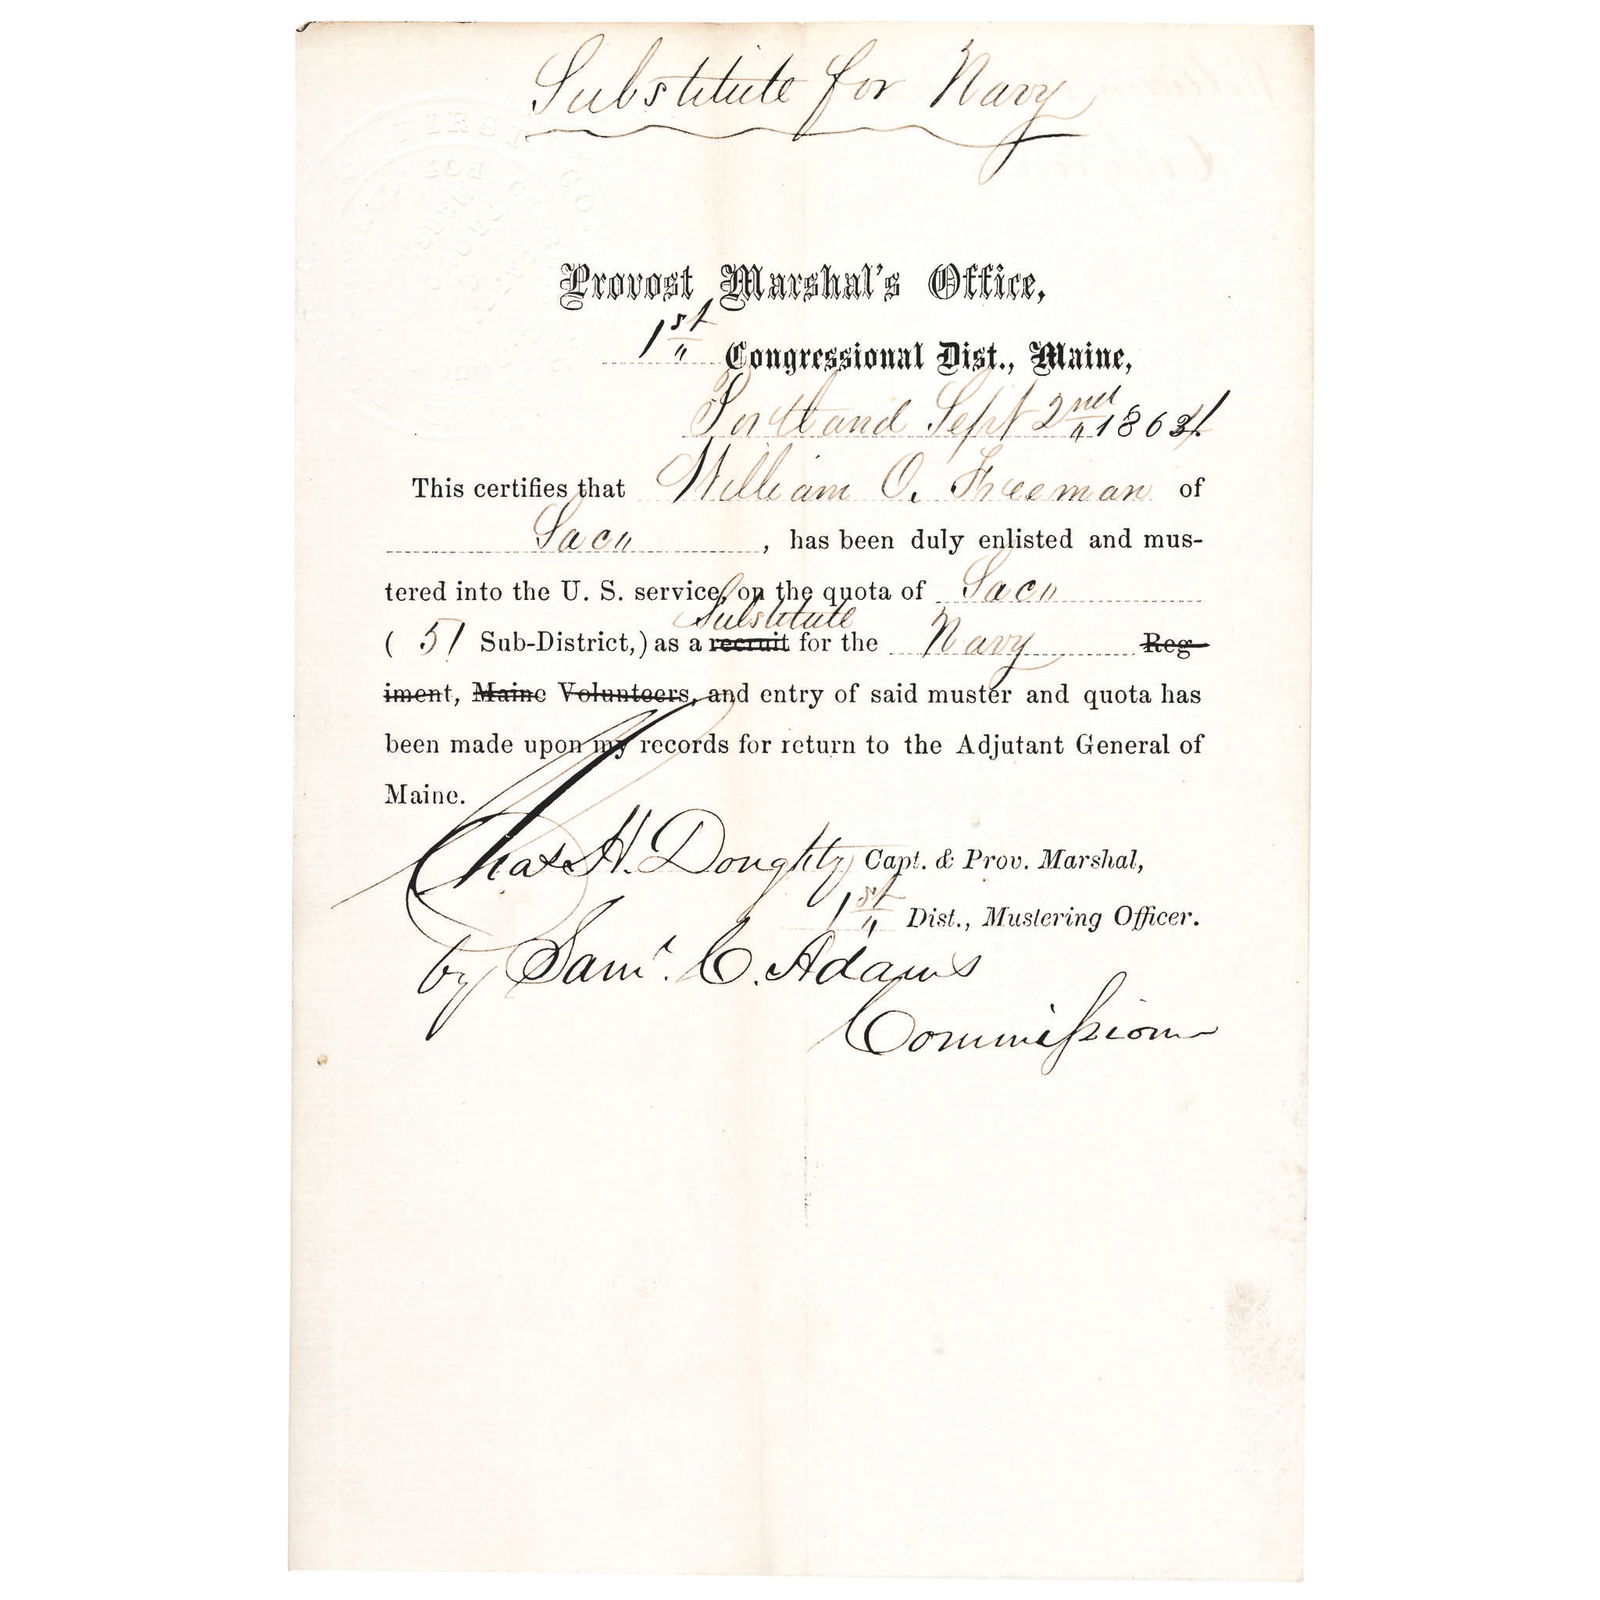 Substitute for Navy
Provost Marshal's Office,
1st Congressional Dist., Maine,
Portland Sept 2nd 1864
This certifies that William O. Freeman of
Saco, has been duly enlisted and mus-
tered into the U. S. service, on the quota of Saco
Substitute
( 51 Sub-District,) as a recruit for the Navy Reg-
iment, Maine Volunteers, and entry of said muster and quota has
been made upon my records for return to the Adjutant General of
Maine.
Chas H. Doughty Capt. & Prov. Marshal,
1st Dist., Mustering Officer.
by Saml. C. Adams
Commission